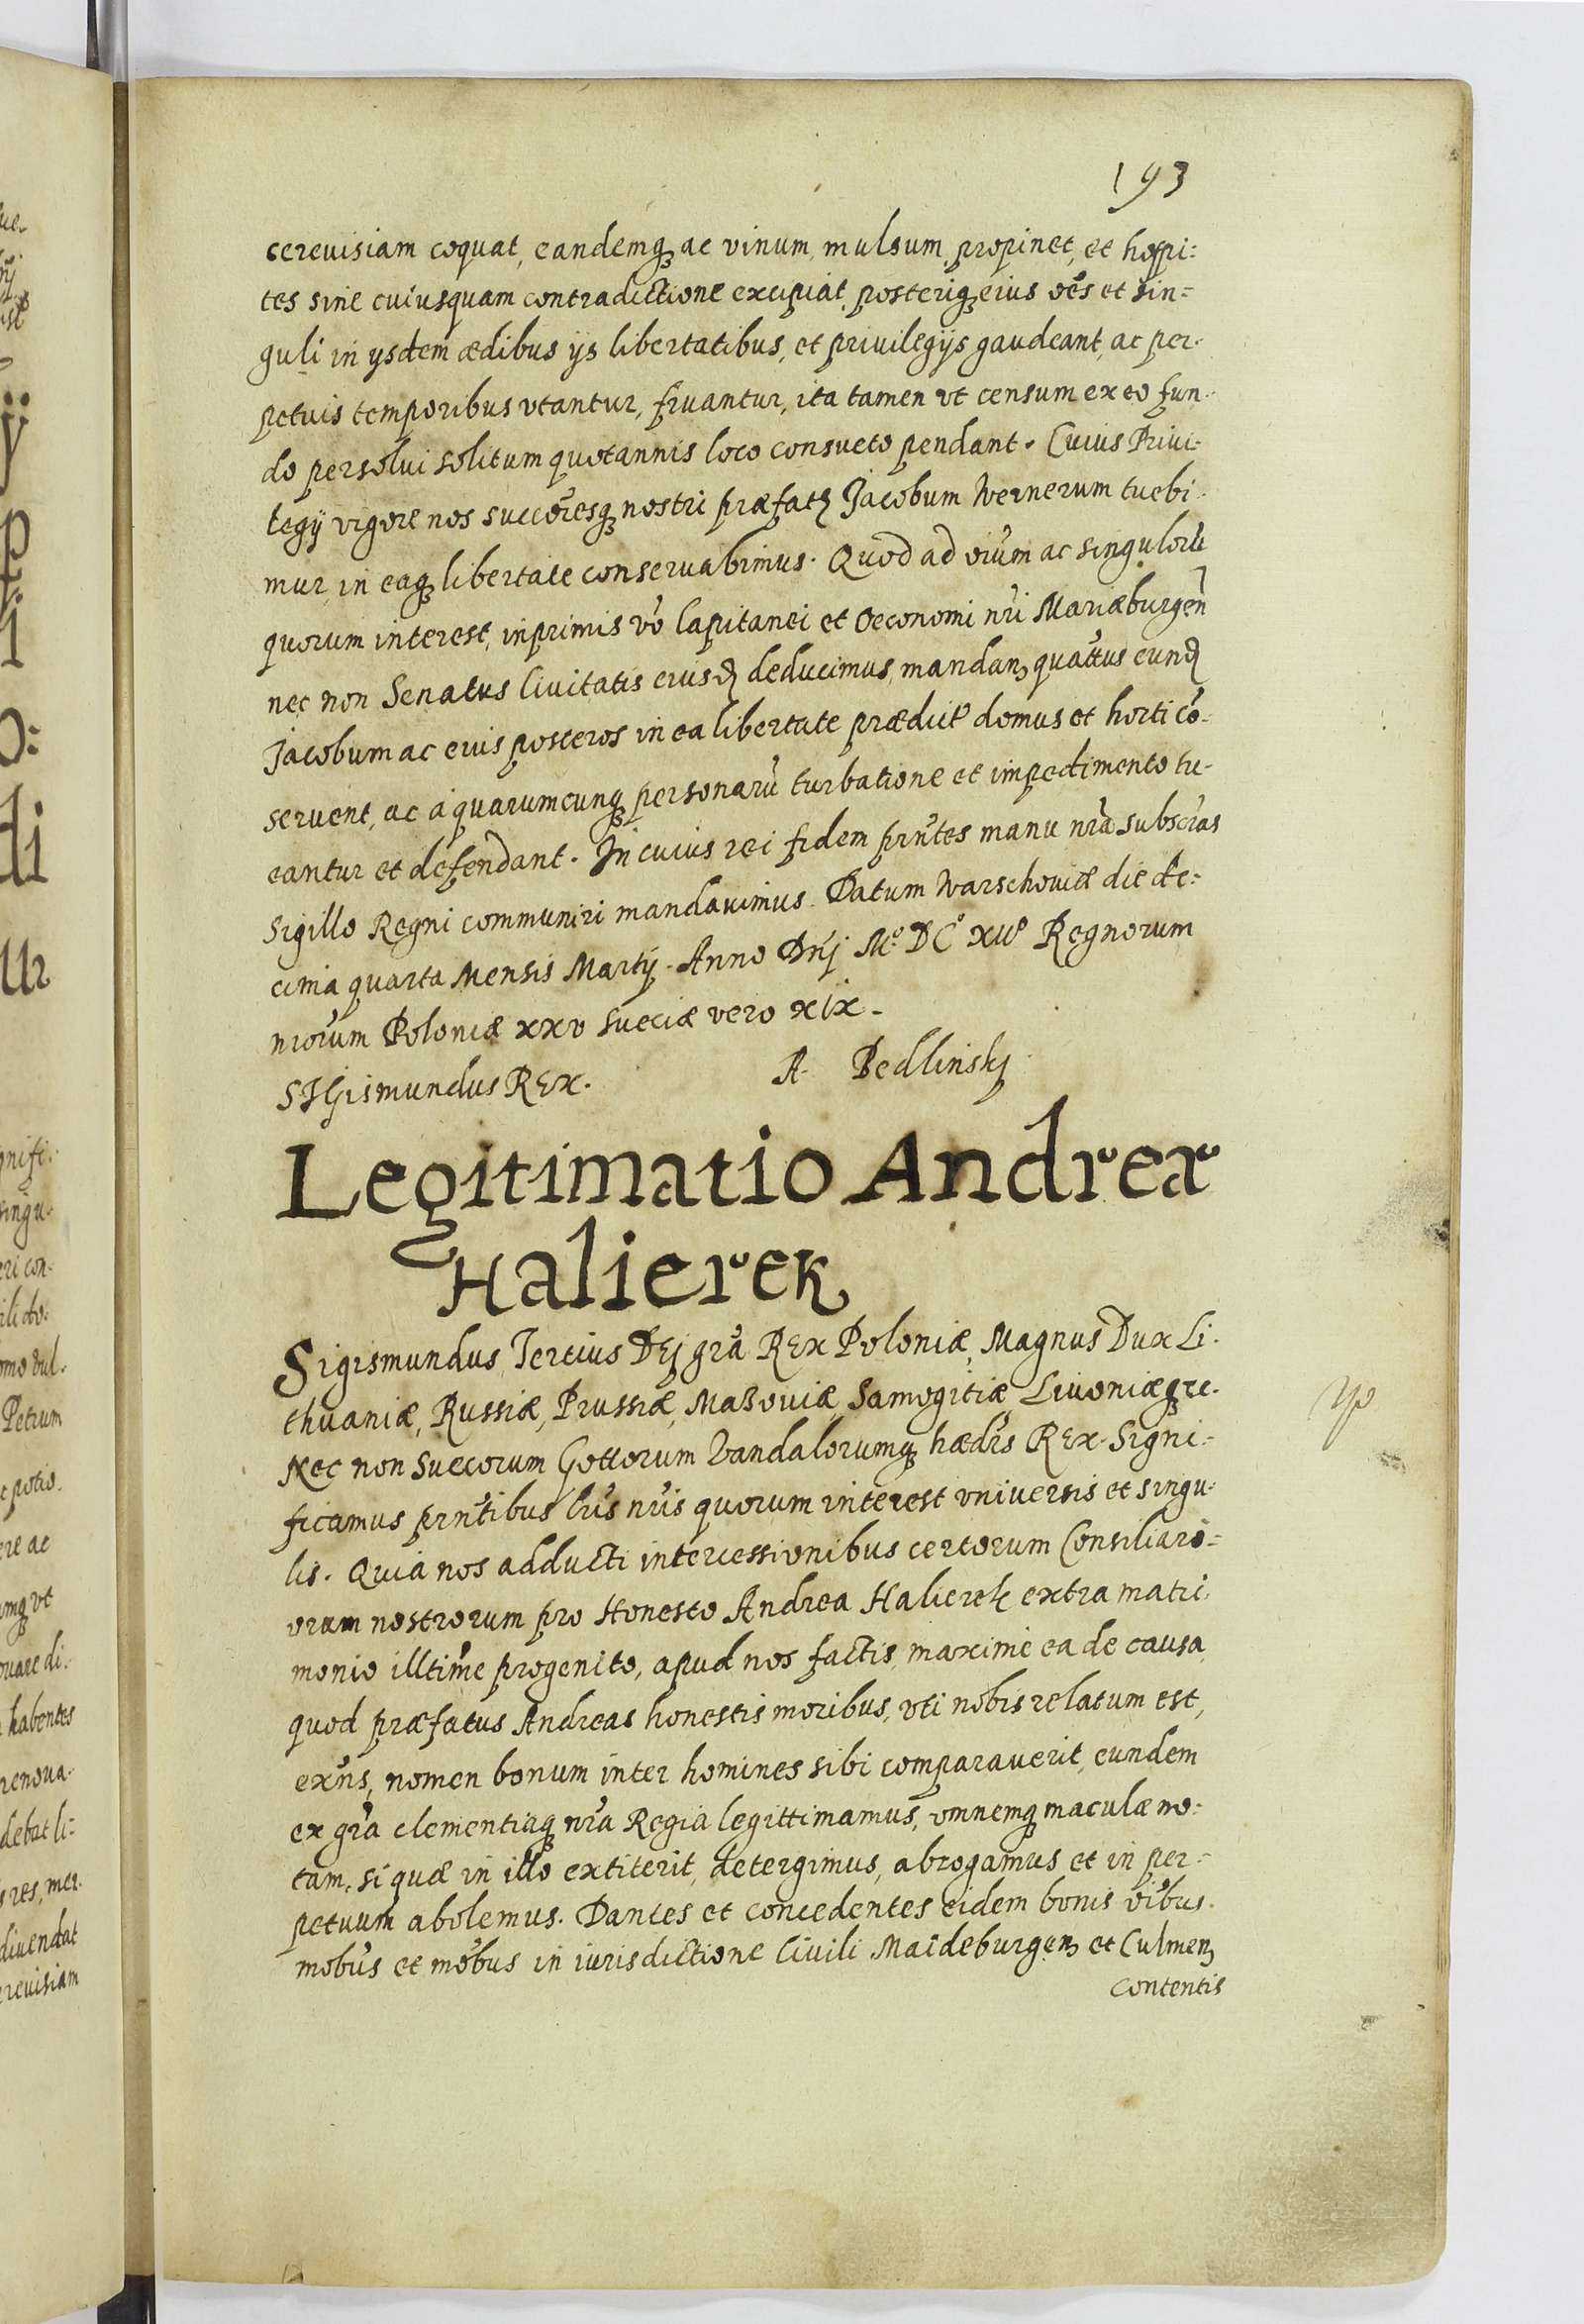 193
cereuisiam coquat, eandemq₃ ac vinum, mulsum propinet, et hospi:
tes sine cuiusquam contradictione excipiat, posteriq₃ eius oēs et sin=
guli in ysdem ædibus ijs libertatibus, et priuilegijs gaudeant, ac per-
petuis temporibus vtantur, fruantur, ita tamen vt censum ex eo fun-
do persolui solitum quotannis loco consueto pendant. Cuius Priui-
legij vigore nos succōresq₃ nostri præfatū Jacobum Wernerum tuebi-
mur, in eaq₃ libertate conseruabimus. Quod ad oium ac singulorū
quorum interest, inprimis vō Capitanei et Oeconomi nrī Mariæburgeñ
nec non Senatus Ciuitatis eiusd. deducimus, mandan₃ quatt̃us eund.
Jacobum ac eius posteros in ea libertate prædict. domus et horti cō-
seruent, ac a quarumcunq₃ personarū turbatione et impedimento tu-
eantur et defendant. In cuius rei fidem prñtes manu nrā subscr̃as
Sigillo Regni communiri mandauimus. Datum Warschouiæ die de:
cima quarta Mensis Martij. Anno Dnj M.º DCº Regnorum
nrorum Poloniæ xxv Sueciæ vero xix.
SIGismundus REx. A. Bedlinskj
Legitimatio Andreæ
Halierek
Sigismundus Tertius DEj grā REx Poloniæ, Magnus Dux Li-
thuaniæ, Russiæ, Prussiæ, Mazouiæ, Samogitiæ Liuoniæq₃ zc.
Nec non Suecorum Gottorum Vandalorumq₃ hædrs REx. Signi:
ficamus prñtibus lrīs nrīs quorum interest vniuersis et singu-
lis. Quia nos adducti intercessionibus certorum Consiliario=
orum nostrorum pro Honesto Andrea Halierek extra matri,
monio illtime progenito, apud nos factis, maxime ea de causa,
quod præfatus Andreas honestis moribus, vti nobis relatum est,
exñs, nomen bonum inter homines sibi comparauerit, eundem
ex grā clementiaq₃ nrā Regia legittimamus, omnemq₃ maculæ no:
tam, si quæ in illo extiterit, detergimus, abrogamus et in per=
petuum abolemus. Dantes et concedentes eidem bonis oībus
mobus et imobus in iurisdictione Ciuili Maideburgen₃ et Culmen₃
contentis